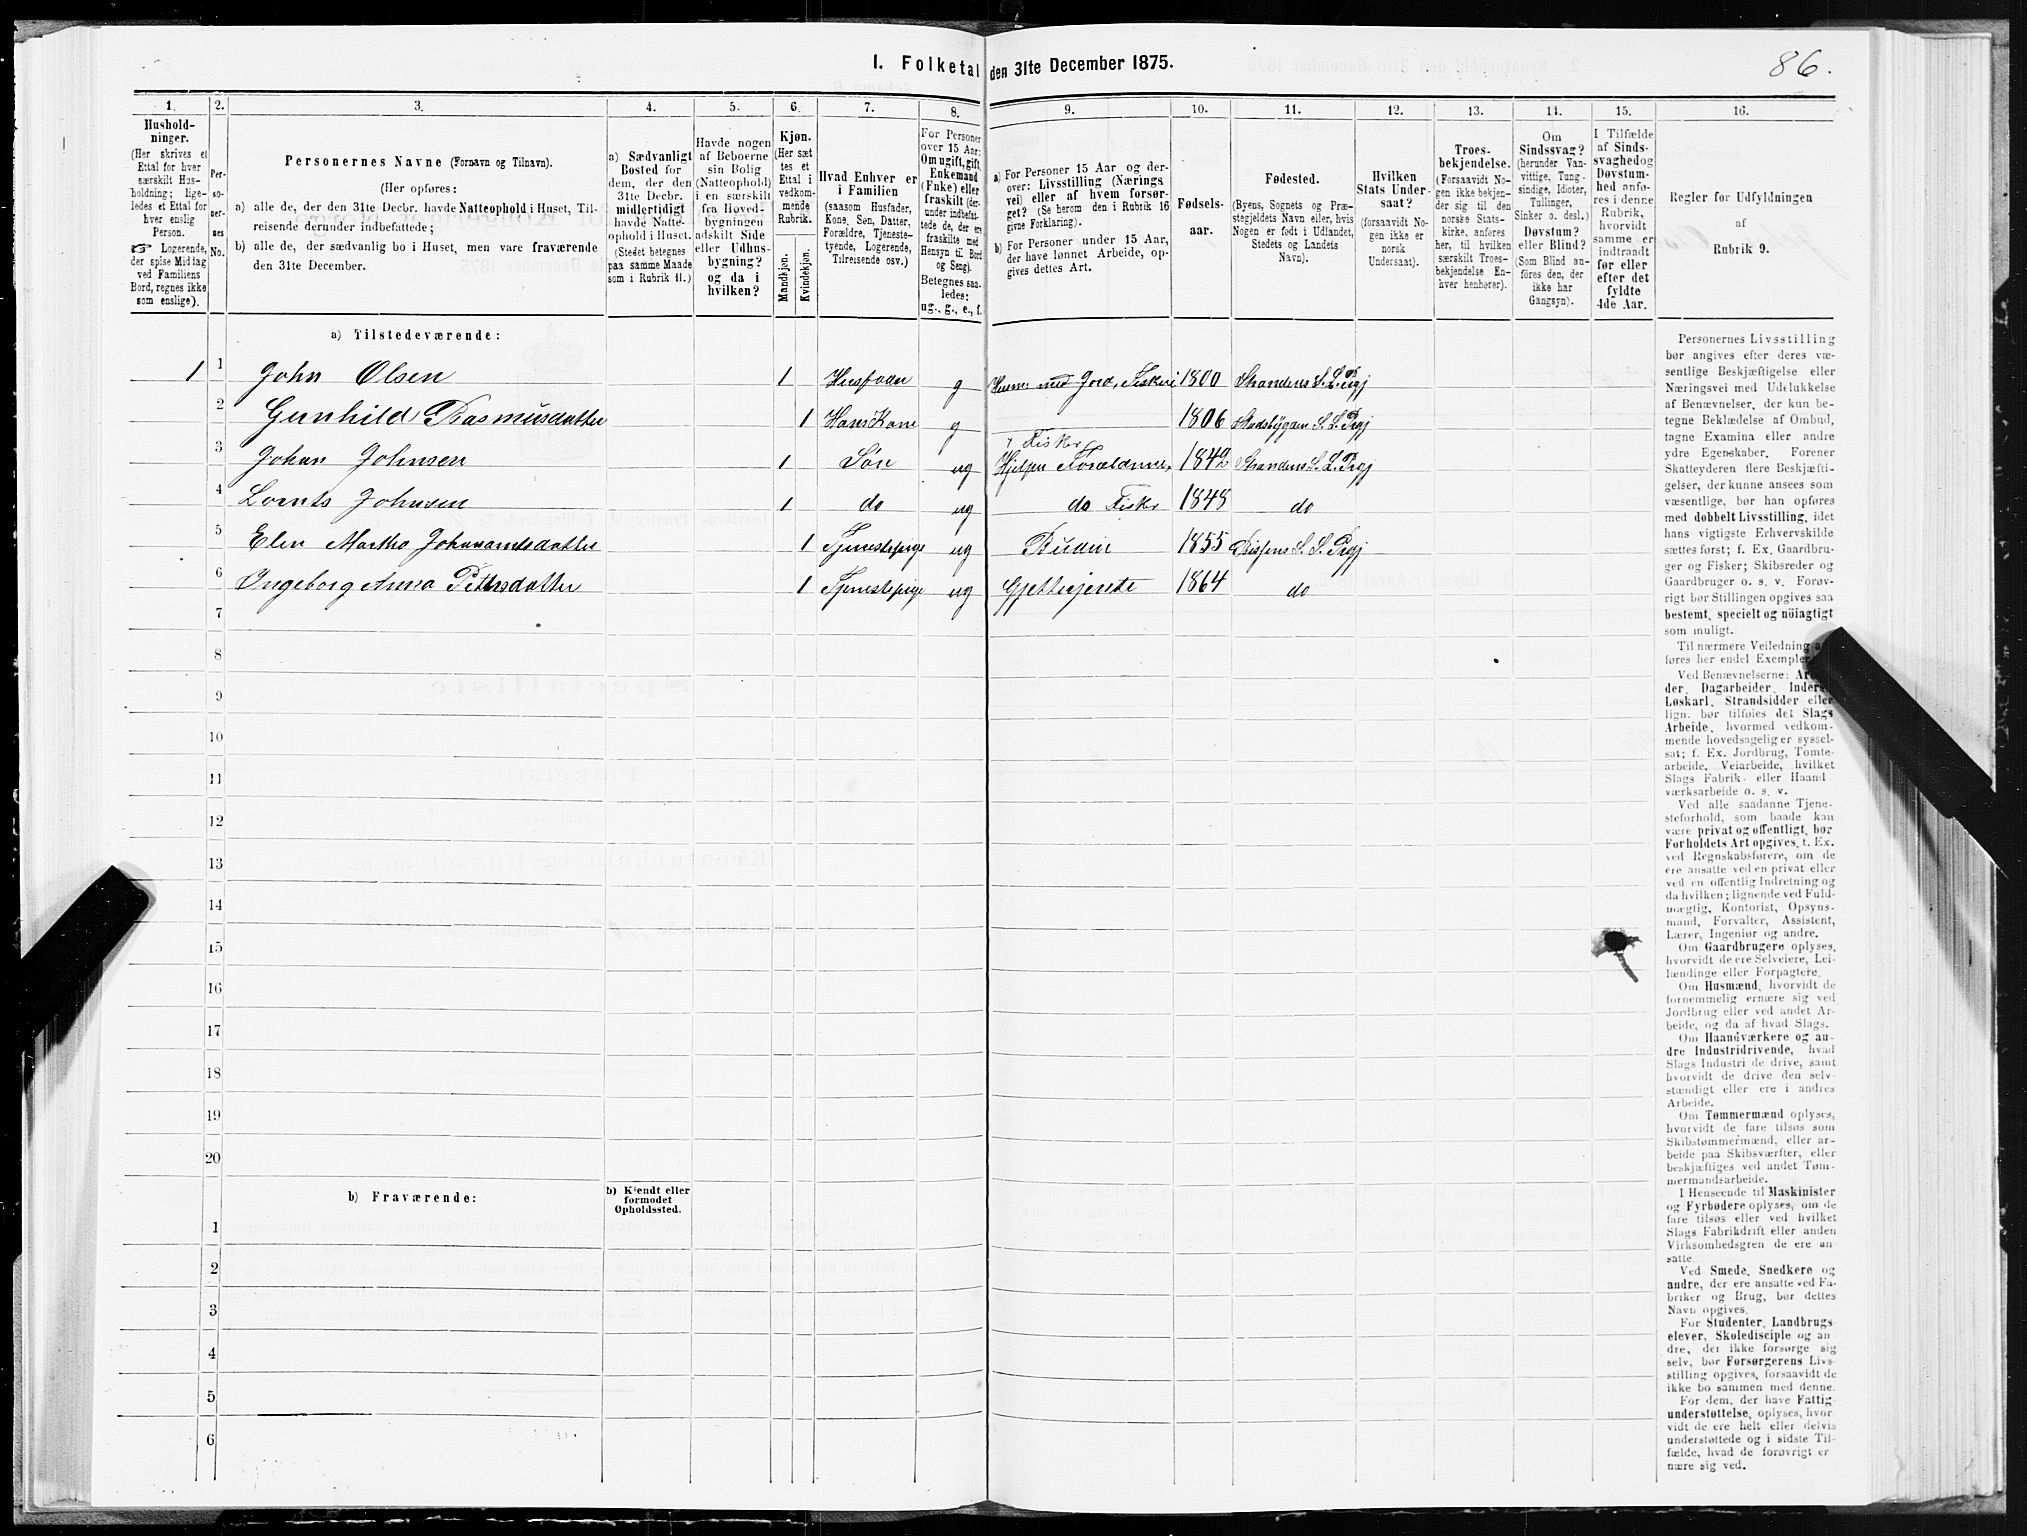 I. Folketal den 31te December 1875.
86.
1.
2.
3.
4.
5.
6.
7.
8.
9.
10.
11.
12.
13.
14.
15.
16.
Hushold-
ninger.
(Her skrives et
Ettal for hver
særskilt Hus-
holdning; lige-
ledes et Ettal for
hver enslig
Person.
☞ Logerende,
der spise Middag
ved Familiens
Bord, regnes ikke
som enslige).
Per-
so-
ner-
nes
No.
Personernes Navne (Fornavn og Tilnavn).
(Her opføres:
a) alle de, der den 31te Decbr. havde Natteophold i Huset, Til-
reisende derunder indbefattede;
b) alle de, der sædvanlig bo i Huset, men vare fraværende
den 31te December.
a) Sædvanligt
Bosted for
dem, der den
31te Decbr.
midlertidigt
havde Natte-
ophold i Huset.
(Stedet betegnes
paa samme Maade
som i Rubrik 11.)
Havde nogen
af Beboerne
sin Bolig
(Natteophold)
i en særskilt
fra Hoved-
bygningen
adskilt Side
eller Udhus-
bygning?
og da i
hvilken?
Kjøn.
(Her sæt-
tes et
Ettal i
vedkom-
mende
Rubrik.
Mandkjøn.
Kvindekjøn.
Hvad Enhver er
i Familien
(saasom Husfader,
Kone, Søn, Datter,
Forældre, Tjeneste-
tyende, Logerende,
Tilreisende osv.)
For Personer
over 15 Aar:
Om ugift, gift,
Enkemand
(Enke) eller
fraskilt (der-
under indbefat-
tede de, der ere
fraskilte med
Hensyn til Bord
og Seng).
Betegnes saa-
ledes:
ug., g., e., f.
a) For Personer 15 Aar og der-
over: Livsstilling (Nærings
vei) eller af hvem forsør-
get? (Se herom den i Rubrik 16
givne Forklaring).
b) For Personer under 15 Aar,
der have lønnet Arbeide, op-
gives dettes Art.
Fødsels-
aar.
Fødested.
(Byens, Sognets og Præ-
stegjeldets Navn eller, hvis
Nogen er født i Udlandet,
Stedets og Landets
Navn).
Hvilken
Stats Under-
saat?
(forsaavidt No-
gen ikke er
norsk
Undersaat).
Troes-
bekjendelse.
(Forsaavidt No-
gen ikke bekjen-
der sig til den
norske Stats-
kirke, anføres
her, til hvilken
særskilt Troes-
bekjendelse En-
hver henhører).
Om
Sindssvag?
(herunder Van-
vittige, Tung-
sindige, Idioter,
Tullinger,
Sinker o. desl.)
Døvstum?
eller Blind?
(Som Blind an-
føres den, der
ikke har
Gangsyn).
I Tilfælde
af Sinds-
svaghed og
Døvstum-
hed anfø-
res i denne
Rubrik,
hvorvidt
samme er
indtraadt
før eller
efter det
fyldte
4de Aar.
Regler for Udfyldningen
af
Rubrik 9.
a) Tilstedeværende:
1 1 John Olsen 1 Husfader g Husm: med Jord, Fiskeri 1800 Strandens S. L. Prgj
2 Gunhild Rasmusdatter 1 Hans Kone g 1806 Stadsbygden S. L. Prgj
3 Johan Johnsen 1 Søn ug Hjelper Forældrene, Fisker 1842 Strandens S. L. Prgj
4 Lornts Johnsen 1 do ug do Fisker 1848 do
5 Elen Martha Johannesdatter 1 Tjenestepige ug Budeie 1855 Rissens S. S. Prgj
6 Ingeborg Anna Petersdatter 1 Tjenestepige ug Gjetterjente 1864 do
7
8
9
10
11
12
13
14
15
16
17
18
19
20
b) Fraværende:
b) Kjendt eller
formodet
Opholdssted.
1
2
3
4
5
6
Personernes Livsstilling
bør angives efter deres væ-
sentlige Beskjæftigelse eller
Næringsvei med Udelukkelse
af Benævnelser, der kun be-
tegne Beklædelse af Ombud,
tagne Examina eller andre
ydre Egenskaber. Forener
Skatteyderen flere Beskjæfti-
gelser, der kunne ansees som
væsentlige, bør han opføres
med dobbelt Livsstilling, idet
hans vigtigste Erhvervskilde
sættes først; f. Ex. Gaardbru-
ger og Fisker; Skibsreder og
Gaardbruger o. s. v. Forøv-
rigt bør Stillingen opgives saa
bestemt, specielt og nöiagtigt
som muligt.
Til nærmere Veiledning
føres her endel Exempler
Ved Benævnelserne:
der, Dagarbeider, Inderst
Løskarl, Strandsidder eller
lign. bør tilføies det Slags
Arbeide, hvormed vedkom-
mende hovedsagelig er syssel-
sat; f. Ex. Jordbrug, Tomte-
arbeide, Veiarbeide, hvilket
Slags Fabrik- eller Haand-
værksarbeide o. s. v.
Ved alle saadanne Tjene-
steforhold, som baade kan
være privat og offentligt, bør
Forholdets Art opgives, t. Ex.
ved Regnskabsførere, om de
ere ansatte ved en privat eller
ved en offentlig Indretning og
da hvilken; lignende ved Fuld-
mægtig, Kontorist, Opsyns-
mand, Forvalter, Assistent,
Lærer, Ingeniør og andre.
Om Gaardbrugere oplyses,
hvorvidt de ere Selveiere, Lei-
lændinge eller Forpagtere.
Om Husmænd, hvorvidt de
fornemmelig ernære sig ved
Jordbrug eller ved andet Ar-
beide, og da af hvad Slags.
Om Haandværkere og an-
dre Industridrivende, hvad
Slags Industri de drive, samt
hvorvidt de drive den selv-
stændigt eller ere i andres
Arbeide.
Om Tømmermænd oplyses,
hvorvidt de fare tilsøs som
Skibstømmermænd, eller ar-
beide paa Skibsværfter, eller
beskjæftiges ved andet Tøm-
mermandsarbeide.
I Henseende til Maskinister
og Fyrbødere oplyses, om de
fare tilsøs eller ved hvilket
Slags Fabrikdrift eller anden
Virksomhedsgren de ere an-
satte.
Ved Smede, Snedkere og
andre, der ere ansatte ved Fa-
briker og Brug, bør dettes
Navn opgives.
For Studenter, Landbrugs-
elever, Skoledisciple og an-
dre, der ikke forsørge sig
selv, bør Forsørgerens Livs-
stilling opgives, forsaavidt de
ikke bo sammen med denne.
For dem, der have Fattig-
understøttelse, oplyses, hvor-
vidt de ere helt eller delvis
understøttede og i sidste Til-
fælde, hvad de forøvrigt er
nære sig ved.